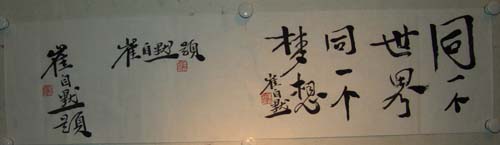 同一个
世界
同一个
梦想
崔自默
崔自默题
崔自默题